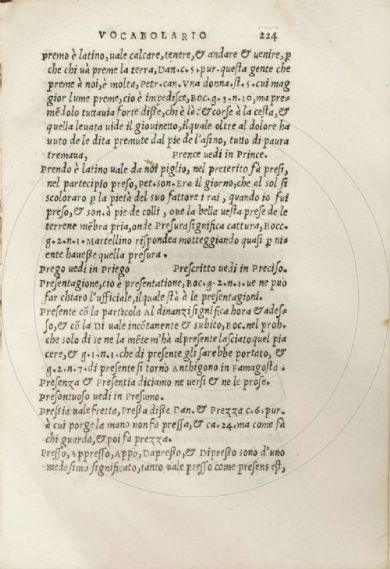 VOCABOLARIO 224
premo è latino, uale calcare, tenere, & andare & uenire, p
che chi uà preme la terra, Dan. c. 5. pur. questa gente che
preme à noi, è molta, Petr. can. Vna donna. st. 5. cui mag
gior lume preme, cio è impedisce, Boc. g. 3. n. 10, ma pre=
mẽdolo tuttauia forte disse, chi è là: & corse à la cesta, &
quella leuata uide il giouinetto, ilquale oltre al dolore ha
uuto de le dita premute dal pie de l'asino, tutto di paura
tremaua, Prence uedi in Prince.
Prendo è latino uale da noi piglio, nel preterito fà presi,
nel partecipio preso, Pet. son. Era il giorno, che al sol si
scoloraro p la pietà del suo fattore i rai, quando io fui
preso, & son. à pie de colli, oue la bella uesta prese de le
terrene mẽbra pria, onde Presura significa cattura, Bocc.
g. 2. n. 1. Martellino rispondea motteggiando quasi p ni=
ente hauesse quella presura.
Prego uedi in Priego Prescritto uedi in Preciso.
Presentagione, cio è presentatione, Boc. g. 2. n. 1. ue ne può
far chiaro l'ufficiale, ilquale stà à le presentagioni.
Presente cõ la particola Al dinanzi significa hora & ades=
so, & cõ la Di uale incõtanente & subito, Boc. nel proh.
che solo di se ne la mẽte m'hà al presente lasciato quel pia
cere, & g. 1. n. 1. che di presente gli sarebbe portato, &
g. 2. n. 7. di presente si tornò Anthigono in Famagosta.
Presenza & Presentia diciamo ne uersi & ne le prose.
Presontuoso uedi in Presumo.
Pressia uale fretta, Pressa disse Dan. & Prezza c. 6. pur.
à cui porge la mano non fà pressa, & ca. 24. ma come fà
chi guarda, & poi fà prezza.
Presso, Appresso, Appo, Dapresso, & Dipresso sono d'uno
medesimo significato, tanto uale presso come presens est,